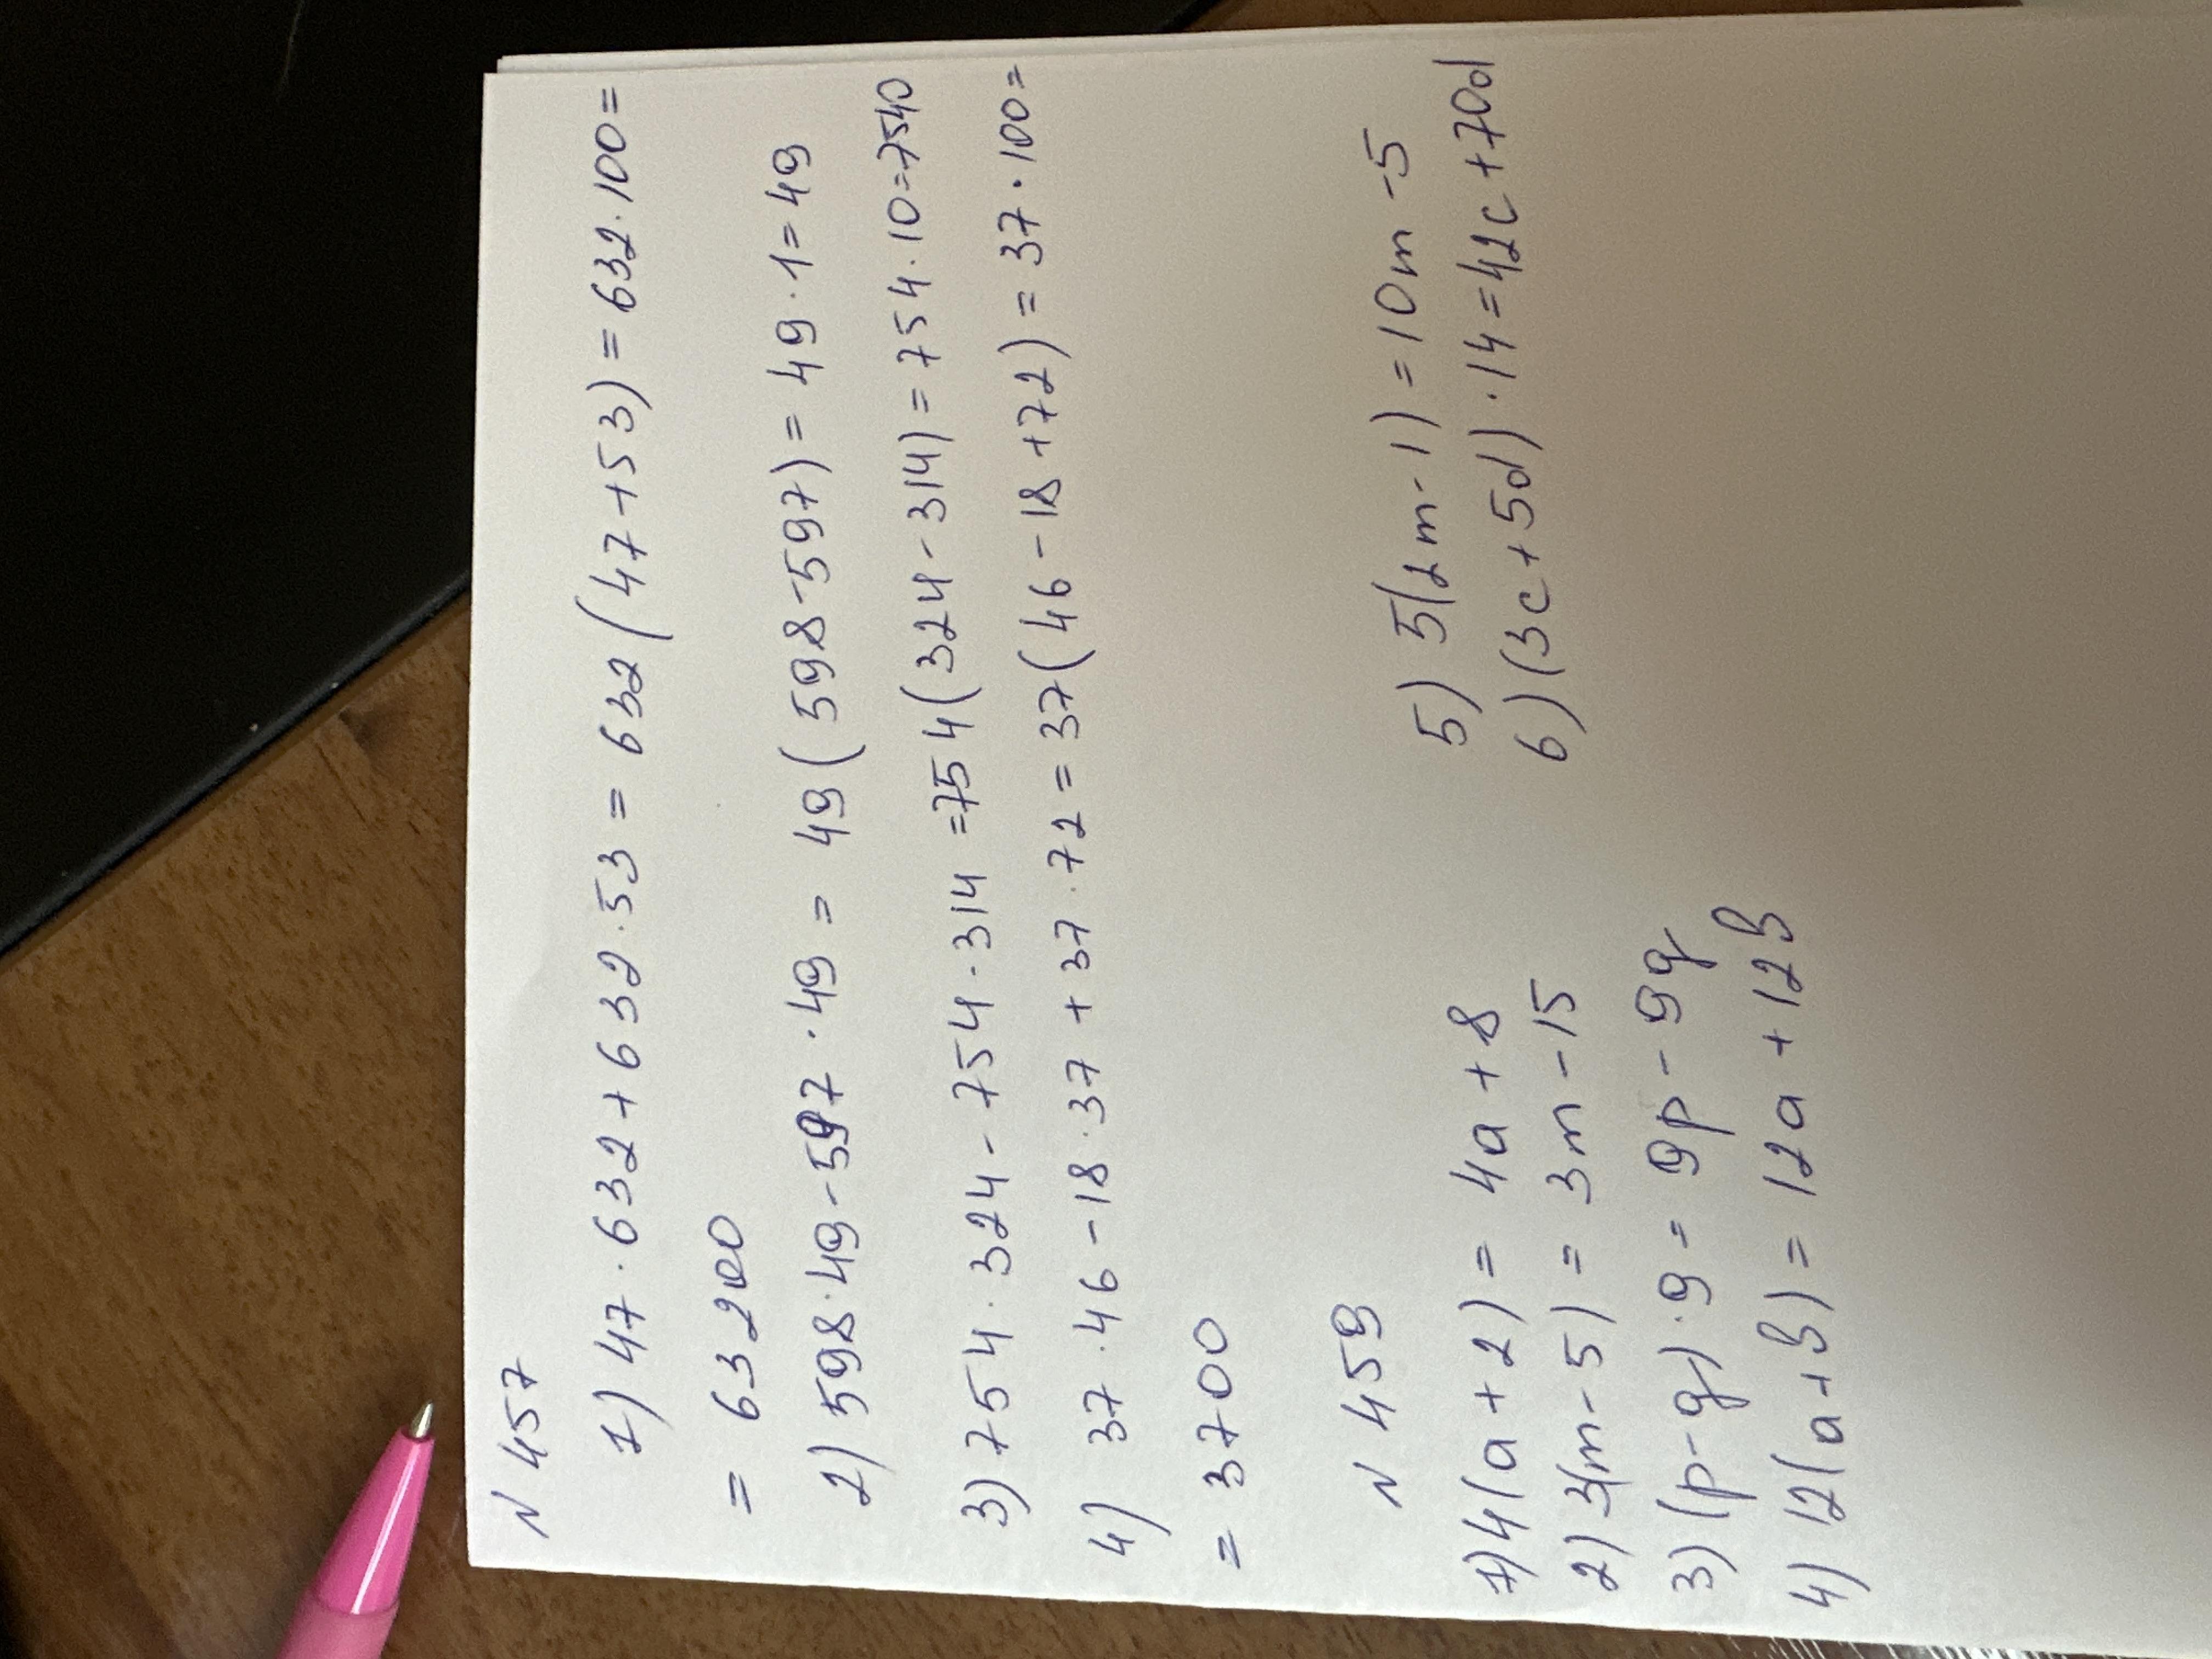 N 457
1) 47 · 632 + 632 · 53 = 632 (47 + 53) = 632 · 100 =
= 63200
2) 598 · 49 - 597 · 49 = 49 (598 - 597) = 49 · 1 = 49
3) 754 · 324 - 754 · 314 = 754 (324 - 314) = 754 · 10 = 7540
4) 37 · 46 - 18 · 37 + 37 · 72 = 37 (46 - 18 + 72) = 37 · 100 =
= 3700
N 459
1) 4(a + 2) = 4a + 8
2) 3(m - 5) = 3m - 15
3) (p - q) · 9 = 9p - 9q
4) 12(a + b) = 12a + 12b
5) 5(2m - 1) = 10m - 5
6) (3c + 5d) · 14 = 42c + 70d